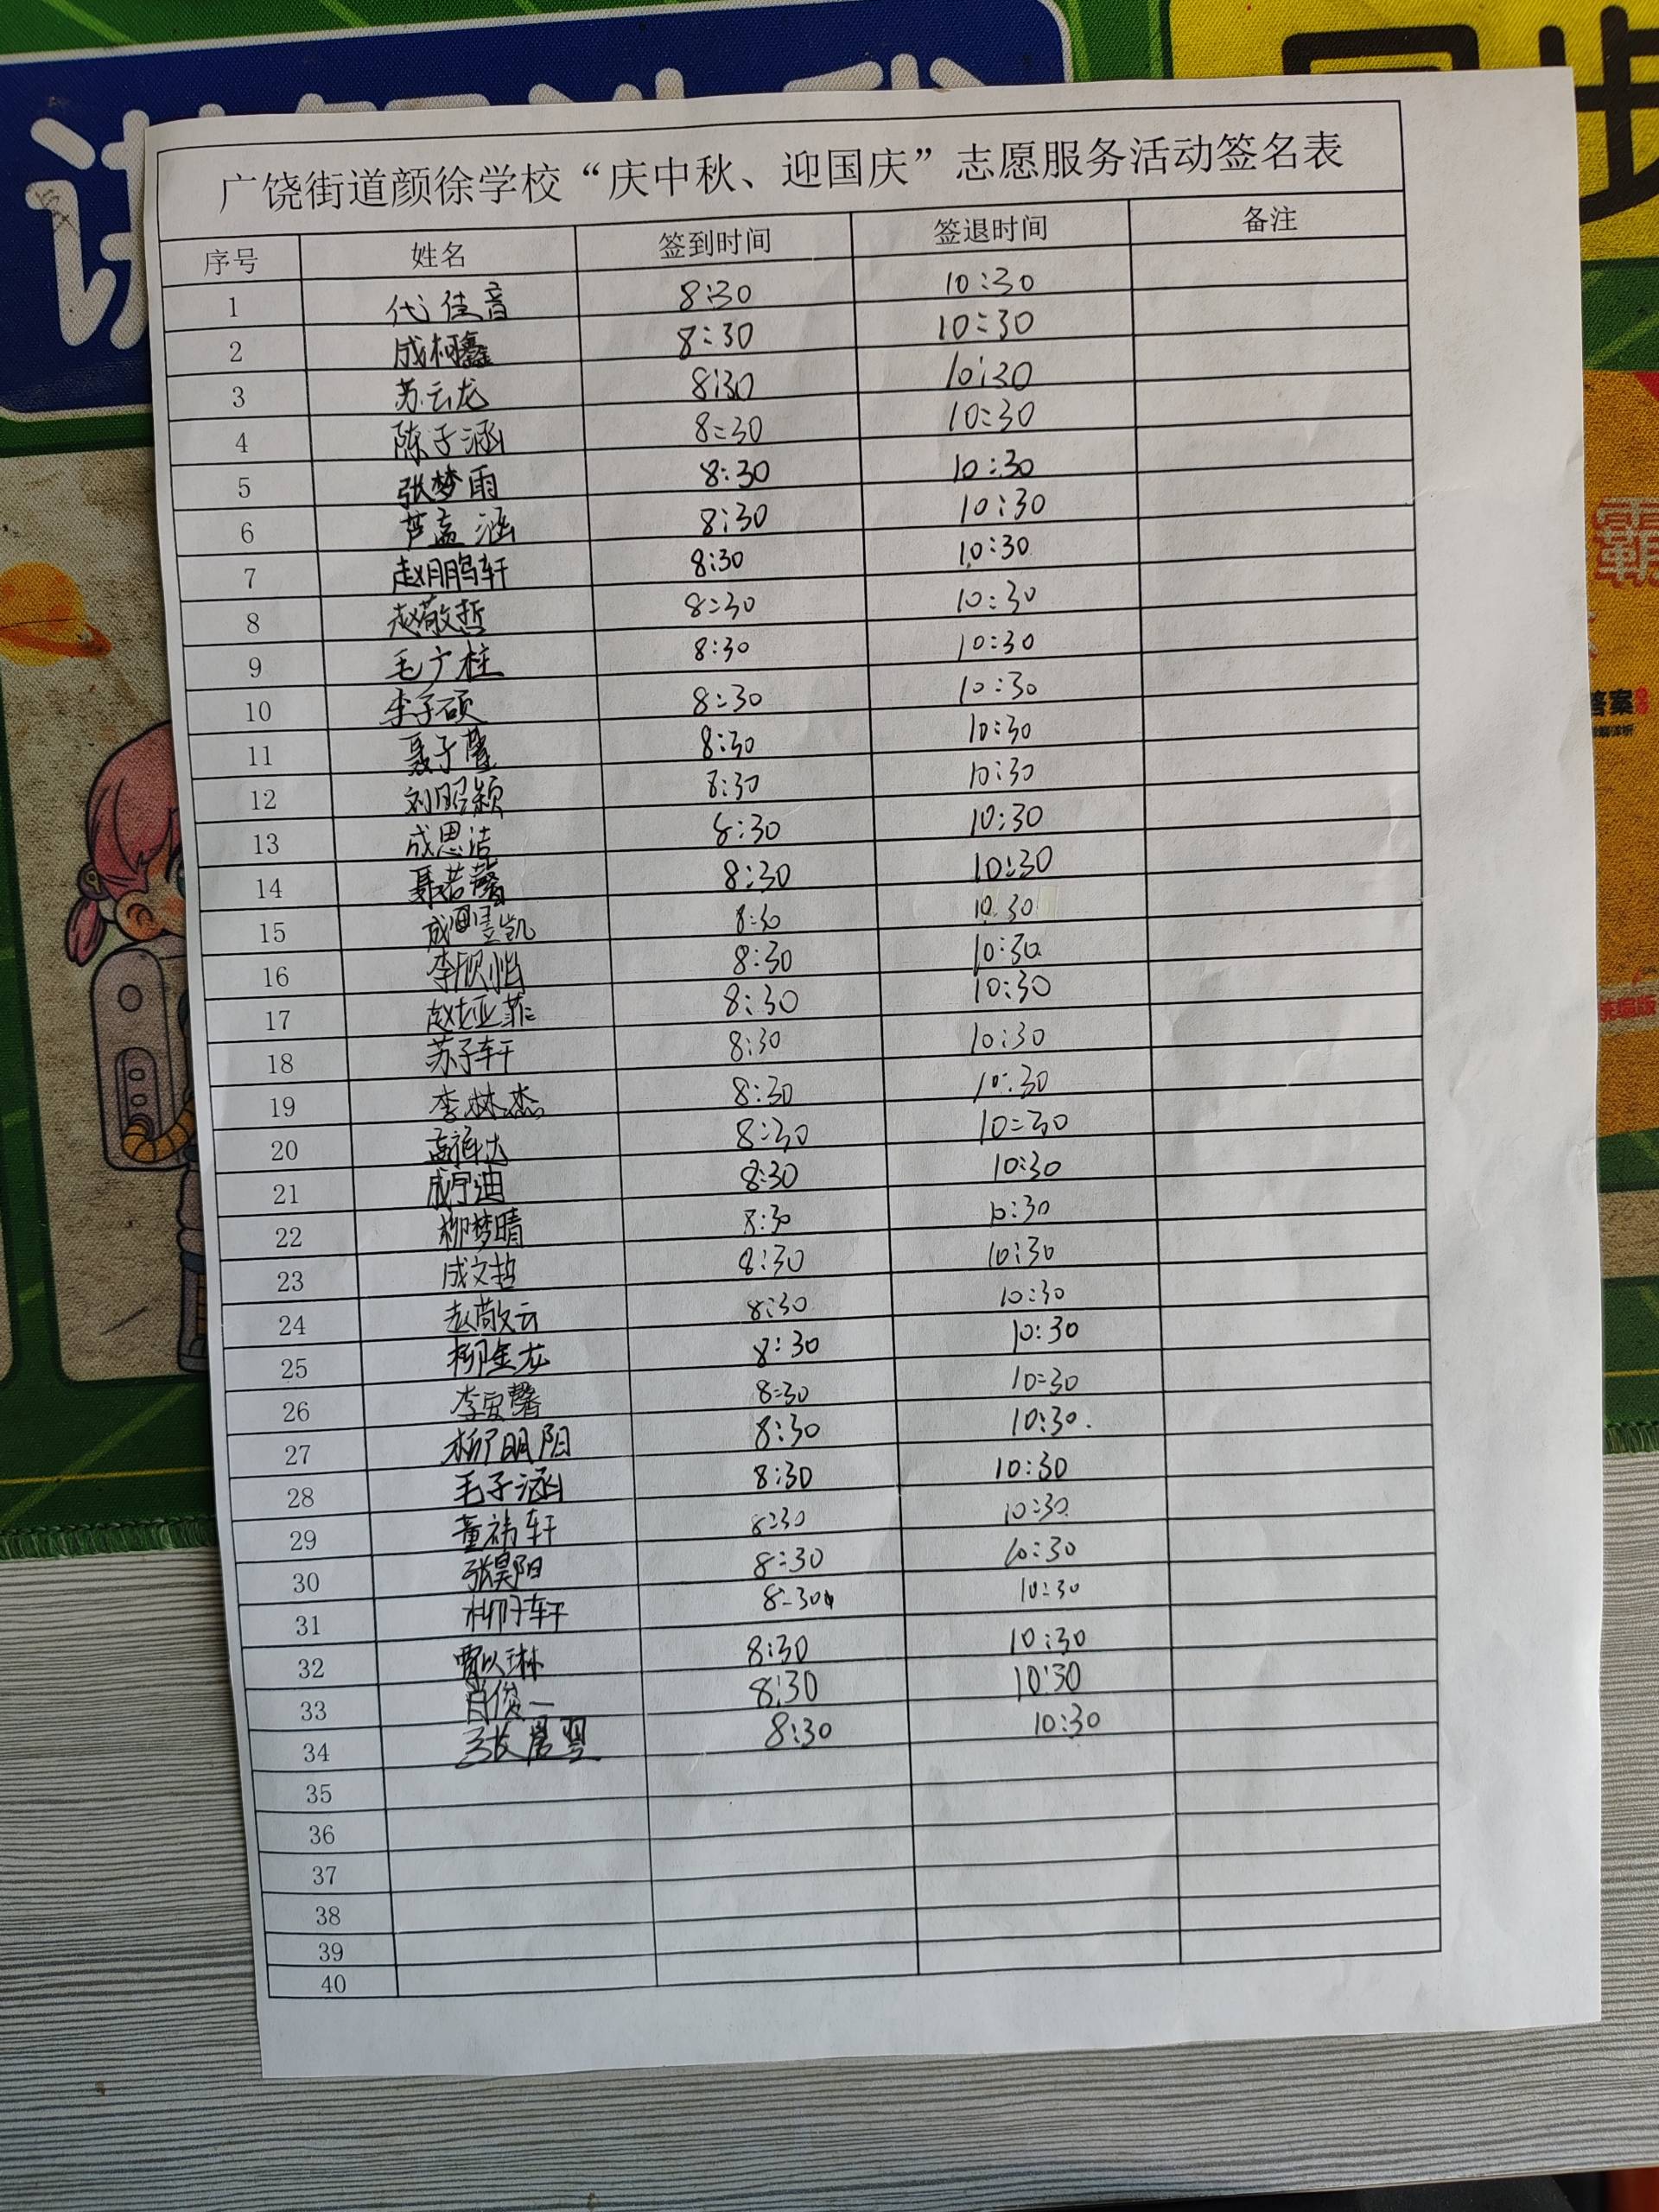 同步
广饶街道颜徐学校“庆中秋、迎国庆”志愿服务活动签名表
序号 姓名 签到时间 签退时间 备注
1 代佳音 8:30 10:30
2 成柯鑫 8:30 10:30
3 苏云龙 8:30 10:30
4 陈子涵 8:30 10:30
5 张梦雨 8:30 10:30
6 芦孟涵 8:30 10:30
7 赵鹏轩 8:30 10:30
8 赵敬哲 8:30 10:30
9 毛广柱 8:30 10:30
10 李子硕 8:30 10:30
11 聂子 8:30 10:30
12 刘昭颖 8:30 10:30
13 成思洁 8:30 10:30
14 聂若馨 8:30 10:30
15 成昱凯 8:30 10:30
16 李欣怡 8:30 10:30
17 赵亚菲 8:30 10:30
18 苏子轩 8:30 10:30
19 李林杰 8:30 10:30
20 孟祥达 8:30 10:30
21 成宁迪 8:30 10:30
22 柳梦晴 8:30 10:30
23 成文哲 8:30 10:30
24 赵敬云 8:30 10:30
25 柳金龙 8:30 10:30
26 李安馨 8:30 10:30
27 柳明阳 8:30 10:30
28 毛子涵 8:30 10:30
29 董祎轩 8:30 10:30
30 张昊阳 8:30 10:30
31 柳子轩 8:30 10:30
32 贾以琳 8:30 10:30
33 肖俊一 8:30 10:30
34 张 8:30 10:30
35
36
37
38
39
40
霸
答案
统编版